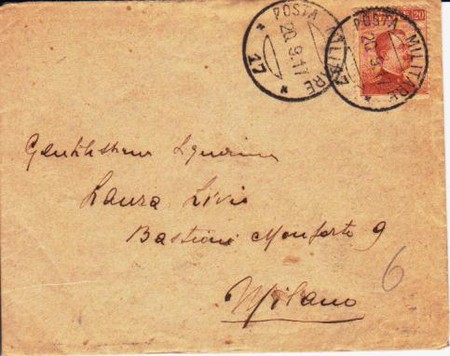 * POSTA MILITARE *
20.9.17
17
POSTA MILITARE
20.9.
*
20
Gentilissima Signorina
Laura Livio
Bastioni Monforte 9
Milano
6